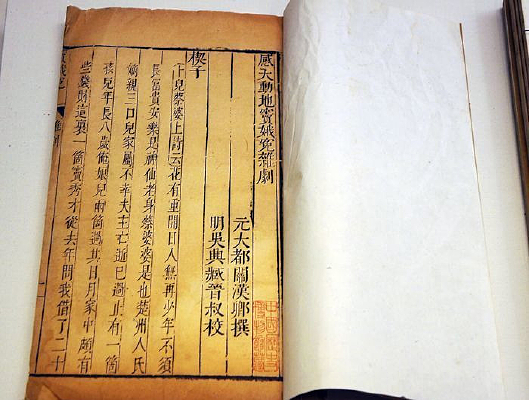 感天動地竇娥冤雜劇
元大都關漢卿撰
明吳興臧晉叔校
楔子
卜兒蔡婆上詩云花有重開日人無再少年不須
長富貴安樂是神仙老身蔡婆婆是也楚州人氏
嫡親三口兒家屬不幸夫主亡逝已過止有一箇
孩兒年長八歲俺娘兒兩箇過其日月家中頗有
些錢財這裏一箇竇秀才從去年問我借了二十